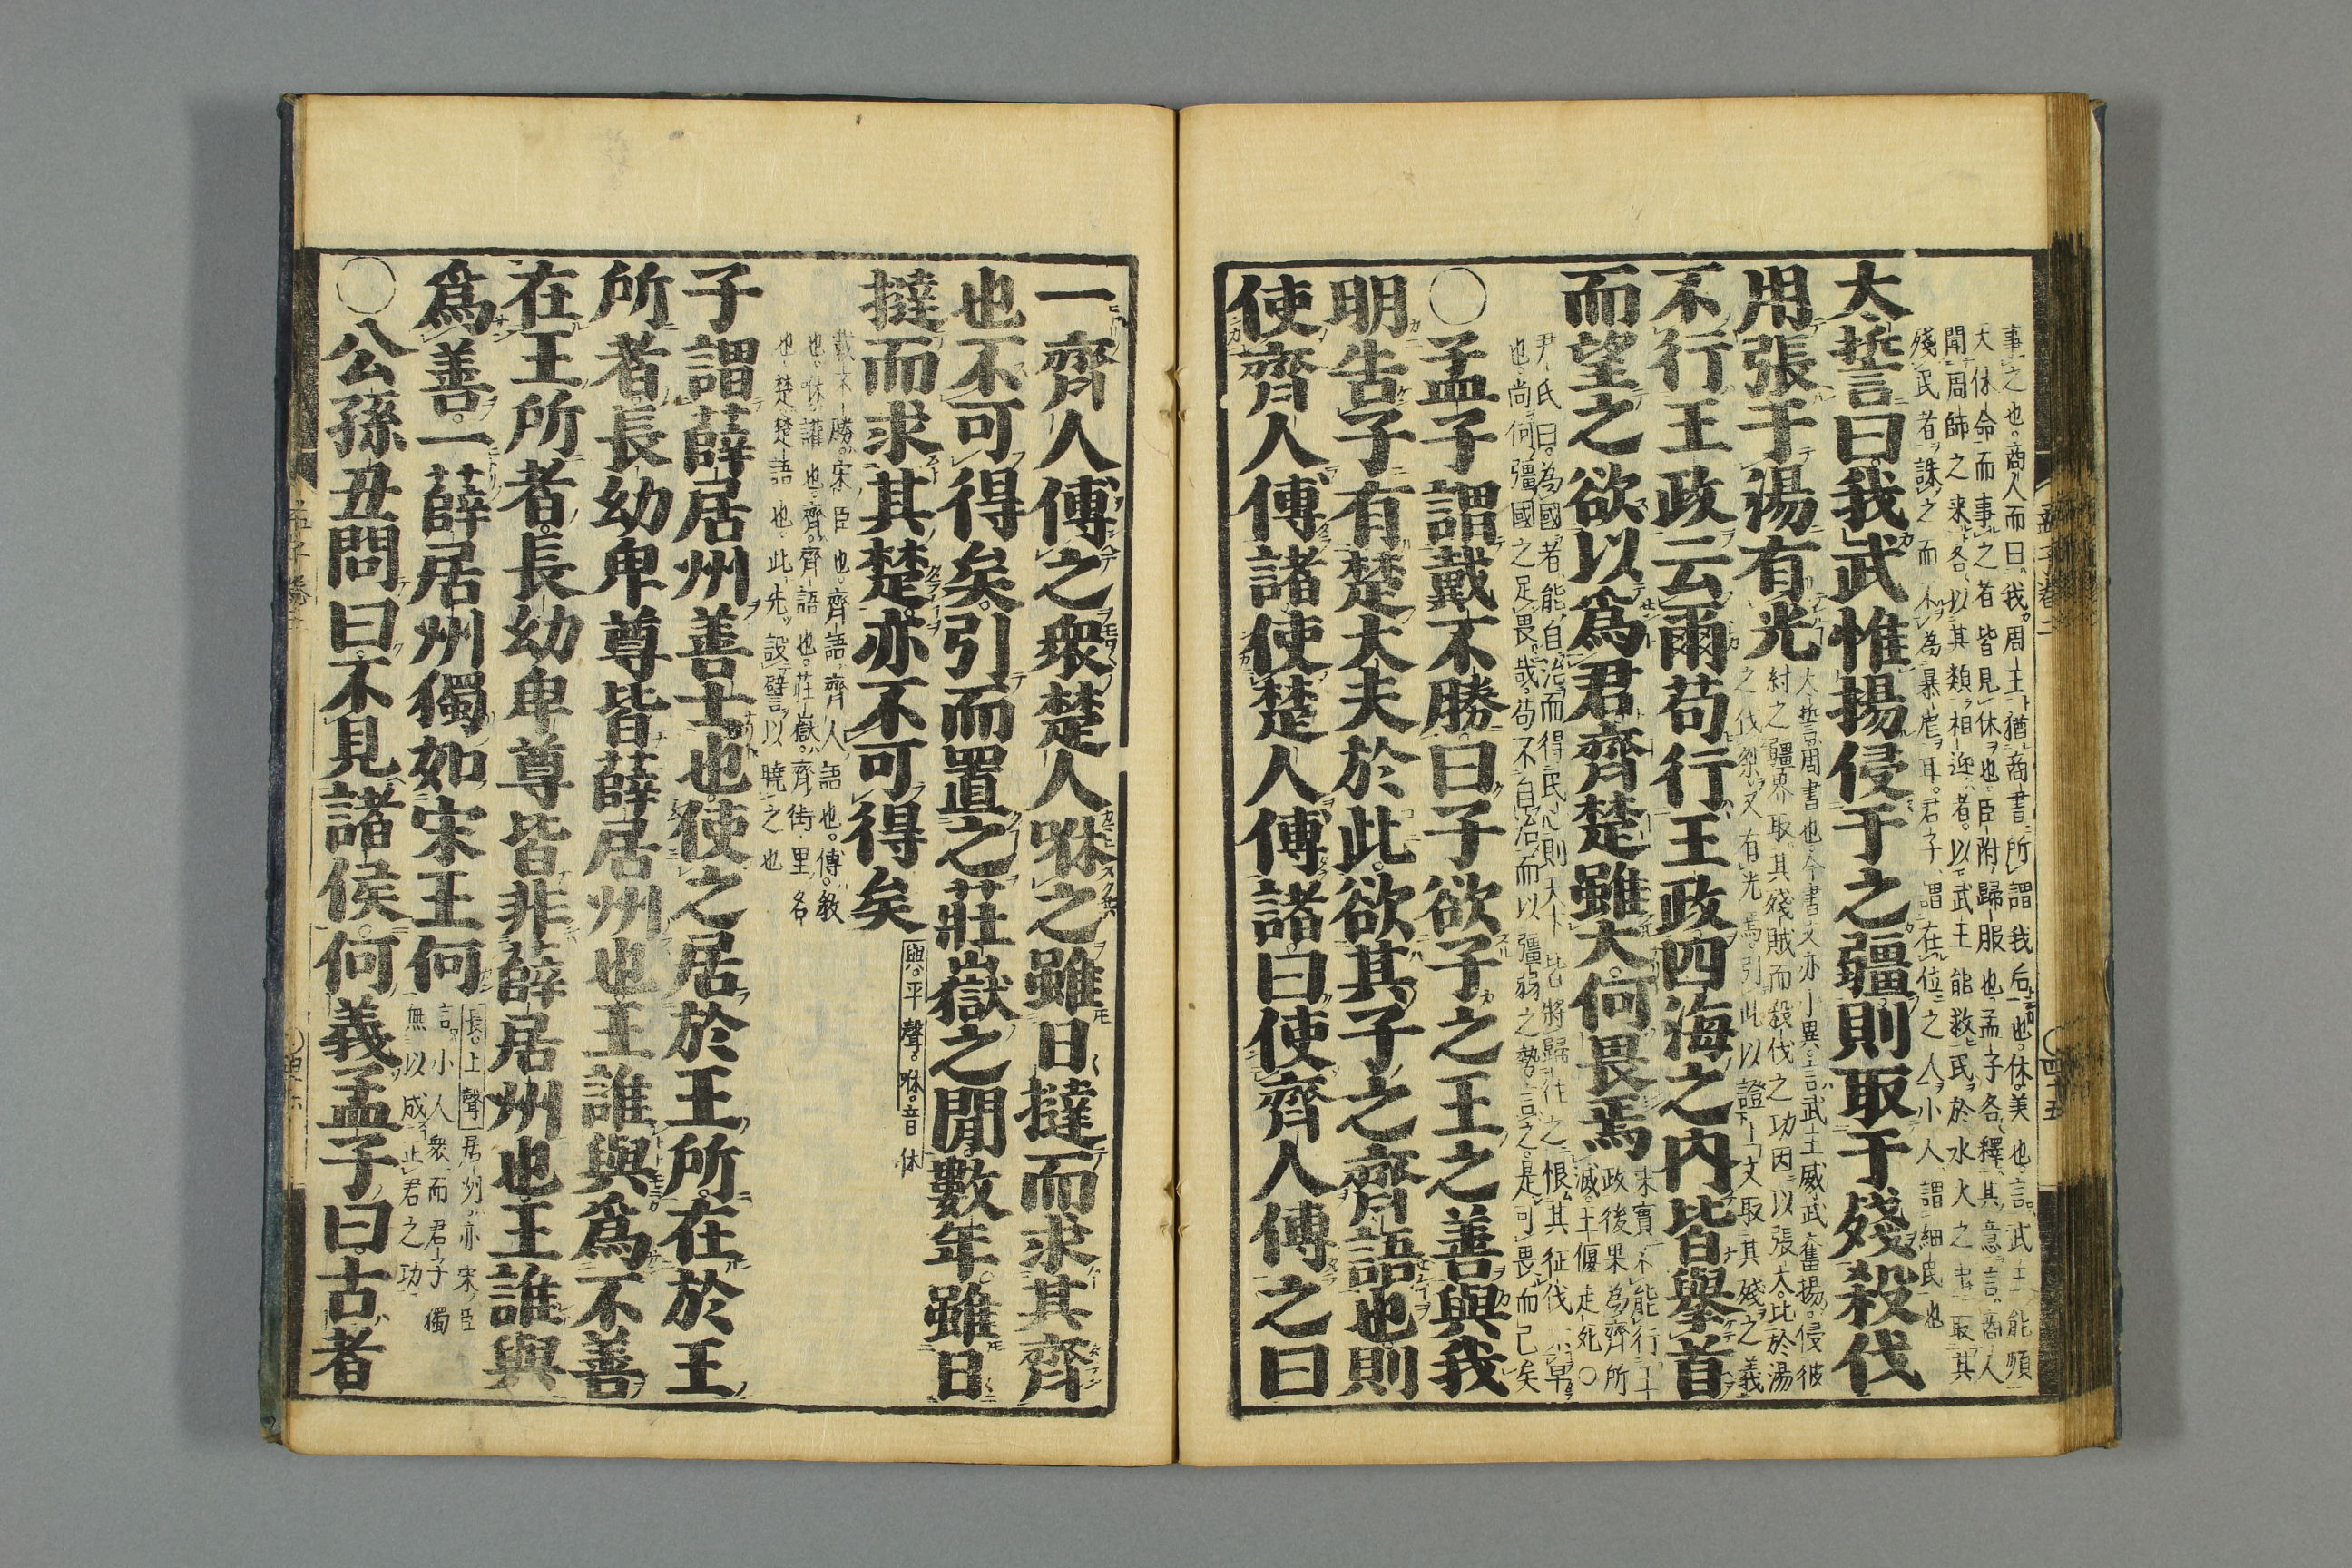 事之也商人而曰我周王猶商書所謂我后也休美也言武王能順
天休命而事之者皆見休也臣附歸服也孟子各釋其意言商人
聞周師之来各以其類相迎者以武王能救民於水火之中取其
殘民者誅之而不為暴虐耳君子謂在位之人小人謂細民也
太誓曰我武惟揚侵于之疆則取于殘殺伐
用張于湯有光
太誓周書也今書文亦小異言武王威武奮揚侵彼
紂之疆界取其殘賊而殺伐之功因以張大比於湯
之伐桀又有光焉引此以證上文取其殘之義
不行王政云爾苟行王政四海之內皆舉首
而望之欲以為君齊楚雖大何畏焉
宋實不能行王
政後果為齊所
滅王偃走死○
尹氏曰為國者能自治而得民心則天下皆將歸往之恨其征伐不早
也尚何彊國之足畏哉苟不自治而以彊弱之勢言之是可畏而已矣
○孟子謂戴不勝曰子欲子之王之善與我
明告子有楚大夫於此欲其子之齊語也則
使齊人傅諸使楚人傅諸曰使齊人傅之曰
一齊人傅之衆楚人咻之雖日撻而求其齊
也不可得矣引而置之莊嶽之閒數年雖日
撻而求其楚亦不可得矣
與平聲咻音休
戴不勝宋臣也齊語齊人語也傅教
也咻讙也齊齊語也莊嶽齊街里名
也楚楚語也此先設譬以曉之也
子謂薛居州善士也使之居於王所在於王
所者長幼卑尊皆薛居州也王誰與爲不善
在王所者長幼卑尊皆非薛居州也王誰與
爲善一薛居州獨如宋王何
長上聲居州亦宋臣
言小人衆而君子獨
無以成正君之功
○公孫丑問曰不見諸侯何義孟子曰古者
孟子卷三
四十五